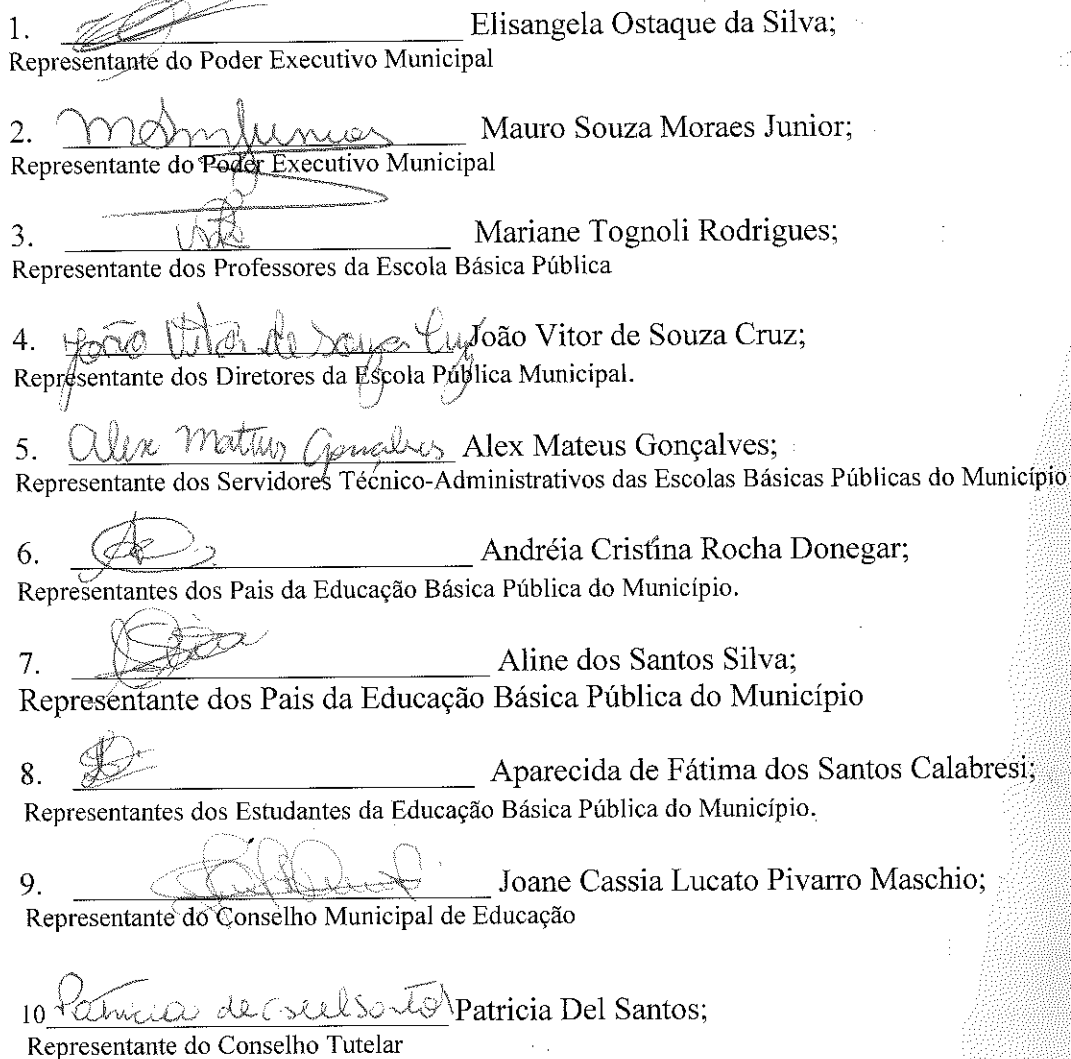 1. Elisangela Ostaque da Silva;
Representante do Poder Executivo Municipal
2. Mauro Souza Moraes Junior;
Representante do Poder Executivo Municipal
3. Mariane Tognoli Rodrigues;
Representante dos Professores da Escola Básica Pública
4. João Vitor de Souza Cruz João Vitor de Souza Cruz;
Representante dos Diretores da Escola Pública Municipal.
5. Alex Mateus Gonçalves Alex Mateus Gonçalves;
Representante dos Servidores Técnico-Administrativos das Escolas Básicas Públicas do Município
6. Andréia Cristina Rocha Donegar;
Representantes dos Pais da Educação Básica Pública do Município.
7. Aline dos Santos Silva;
Representante dos Pais da Educação Básica Pública do Município
8. Aparecida de Fátima dos Santos Calabresi;
Representantes dos Estudantes da Educação Básica Pública do Município.
9. Joane Cassia Lucato Pivarro Maschio;
Representante do Conselho Municipal de Educação
10 Patricia Patricia Del Santos;
Representante do Conselho Tutelar